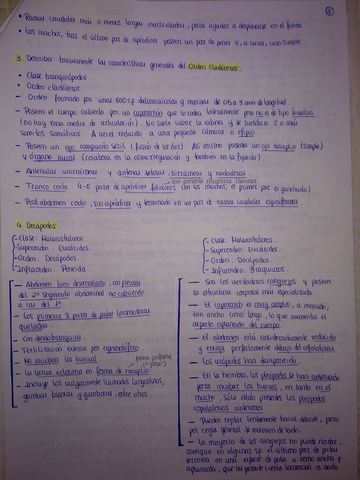 • Ramas caudales más o menos largas multirradiadas, para ayudar a desplazarse en el fondo
• Los machos, tras el último par de apéndices poseen un par de penes o, a veces, uno simple
3. Describa brevemente las características generales del Orden Cladóceros.
• Clase Branquiópodos
• Orden cladóceros
- Orden formado por unas 600 sp dulceacuícolas y marinas de 0.5 a 3 mm de longitud
- Poseen el cuerpo cubierto por un caparazón que lo rodea lateralmente pero no es de tipo bivalvo
(no hay línea media de articulación) No suele cubrir la cabeza y se suelda a 2 o más
somitos torácicos A veces reducido a una pequeña cámara o
- Poseen un ojo compuesto sésil (fusión de los dos) Así mismo presenta un ojo nauplio (simple)
y órgano nucal (colabora en la osmorregulación y también en la fijación)
- Anténulas unirrámeas y antenas sésiles, birrámeas y nadadoras
- Tronco corto 4-6 pares de apéndices foliáceos (en los machos, el primer par es ganchudo)
- Postabdomen corto, sin apéndices y terminado en un par de ramas caudales espiniformes
4. Decápodos
- Clase: Malacostráceos
- Superorden: Eucáridos
- Orden: Decápodos
- Infraorden: Peneida.
— Abdomen bien desarrollado, con pleuras
del 2º segmento abdominal no cubriendo
a las del 1º.
— Los primeros 3 pares de patas locomotoras
queladas
— con dendobranquias
— Fertilización externa por espermatóforo
— No incuban los huevos
— La larva eclosiona en forma de nauplio
— Incluye los vulgarmente llamados langostinos,
gambas blancas y gambones, entre otros.
- Clase: Malacostráceos
- Superorden: Eucáridos
- Orden: Decápodos.
- Infraorden: Braquiuros.
— Son los verdaderos cangrejos y poseen
la estructura corporal más especializada
— El caparazón es muy ancho, a menudo,
tan ancho como largo, lo que aumenta el
aspecto aplanado del cuerpo.
— El abdomen está considerablemente reducido
y encaja perfectamente debajo del cefalotórax
— Los urópodos han desaparecido.
— En la hembra, los pleópodos se han conservado
para incubar los huevos, en tanto en el
macho, sólo están presentes los pleópodos
copulatorios anteriores
— Pueden reptar lentamente hacia delante, pero
por regla general se mueven de lado.
— La mayoría de los cangrejos no puede nadar,
aunque en algunas sp el último par de patas
termina en una especie de pala o remo ancha y
aplanada, que les permite cierta locomoción a nado